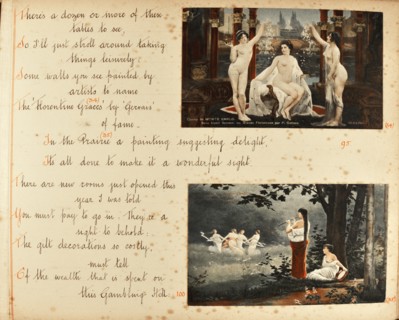 There's a dozen or more of these
tables to see,
So I'll just stroll around taking
things leisurely:
Some walls you see painted by
artists to name
The "Florentine Graces" by "Gervais"
of fame.
In the Prairie a painting suggesting delight,
It's all done to make it a wonderful sight.
There are new rooms just opened this
year I was told
You must pay to go in. They're a
sight to behold:
The gilt decorations so costly,
must tell
Of the wealth that is spent on
this Gambling Hell.
95